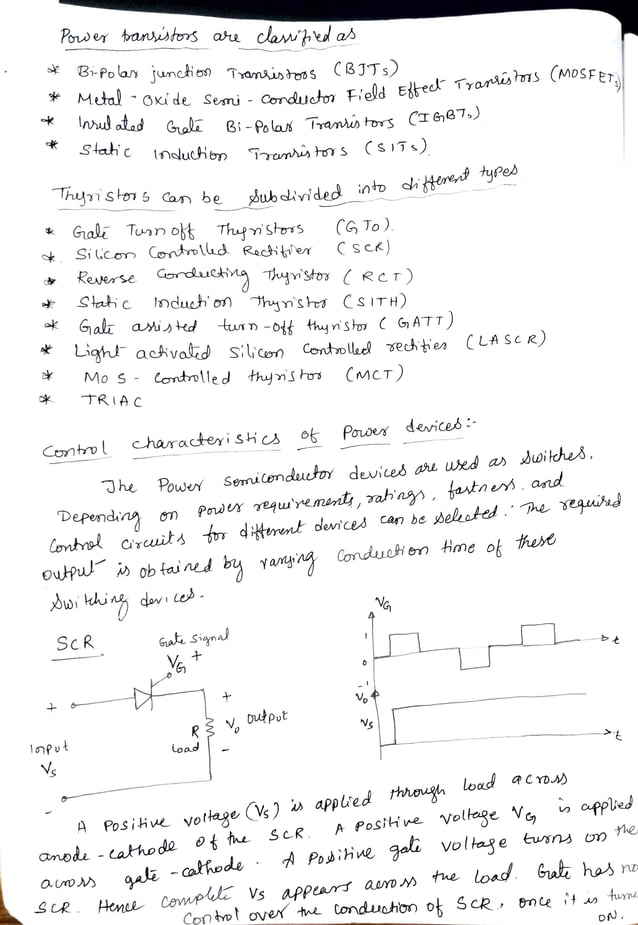 Power transistors are classified as
* Bi-Polar junction Transistors (BJTs)
* Metal-Oxide Semi-Conductor Field Effect Transistors (MOSFETs)
* Insulated Gate Bi-Polar Transistors (IGBTs)
* Static Induction Transistors (SITs)
Thyristors can be subdivided into different types
* Gate Turn off Thyristors (GTO).
* Silicon Controlled Rectifier (SCR)
* Reverse Conducting Thyristor (RCT)
* Static Induction Thyristor (SITH)
* Gate assisted turn-off thyristor (GATT)
* Light activated silicon controlled rectifier (LASCR)
* MOS-controlled thyristor (MCT)
* TRIAC
Control characteristics of Power devices:-
The Power semiconductor devices are used as switches.
Depending on power requirements, ratings, fastness and
control circuits for different devices can be selected. The required
output is obtained by varying conduction time of these
switching devices.
SCR
Gate Signal
VG +
+
+
R
Load
Vo output
-
Input
Vs
-
VG
1
0
t
-1
Vo
Vs
t
A Positive voltage (Vs) is applied through load across
anode-cathode of the SCR. A Positive voltage VG is applied
across gate-cathode. A Positive gate voltage turns on the
SCR. Hence complete Vs appears across the load. Gate has no
control over the conduction of SCR, once it is turned
ON.